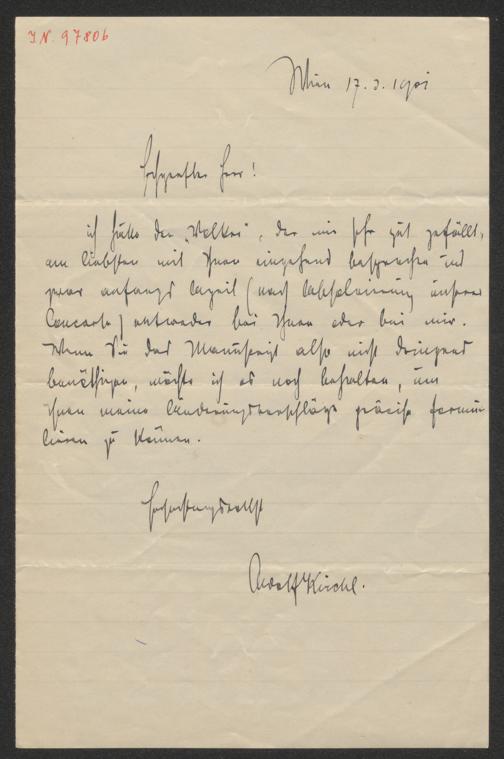 I.N. 97806
Wien 17.3.1901
Hochgeehrter Herr!
ich hätte den „Volker“, der mir sehr gut gefällt,
am liebsten mit Ihnen eingehend besprochen und
zwar anfangs April (nach Absolvierung unserer
Concerte) entweder bei Ihnen oder bei mir.
Wenn Sie das Manuscript also nicht dringend
benöthigen, möchte ich es noch behalten, um
Ihnen meine Änderungsvorschläge präcise formu-
lieren zu können.
Hochachtungsvollst
Adolf Kirchl.